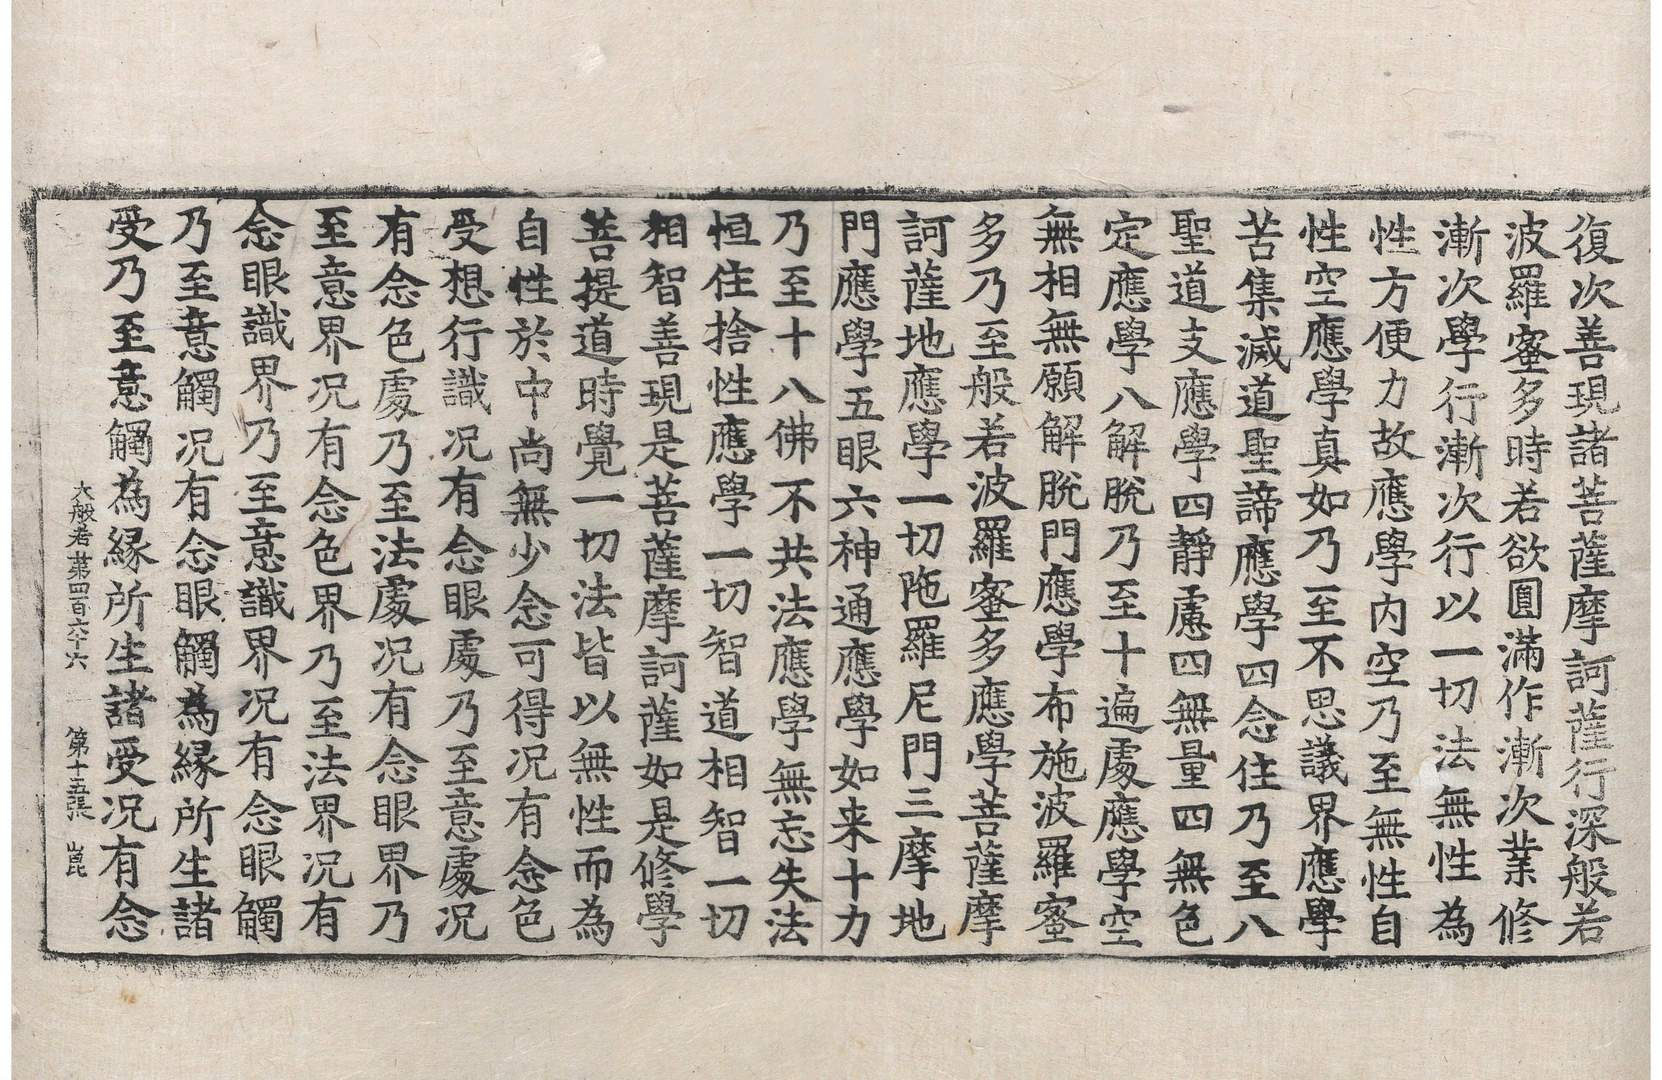 復次善現諸菩薩摩訶薩行深般若
波羅蜜多時若欲圓滿作漸次業修
漸次學行漸次行以一切法無性為
性方便力故應學內空乃至無性自
性空應學真如乃至不思議界應學
苦集滅道聖諦應學四念住乃至八
聖道支應學四靜慮四無量四無色
定應學八解脫乃至十遍處應學空
無相無願解脫門應學布施波羅蜜
多乃至般若波羅蜜多應學菩薩摩
訶薩地應學一切陁羅尼門三摩地
門應學五眼六神通應學如来十力
乃至十八佛不共法應學無忘失法
恒住捨性應學一切智道相智一切
相智善現是菩薩摩訶薩如是修學
菩提道時覺一切法皆以無性而為
自性於中尚無少念可得況有念色
受想行識況有念眼處乃至意處況
有念色處乃至法處況有念眼界乃
至意界況有念色界乃至法界況有
念眼識界乃至意識界況有念眼觸
乃至意觸況有念眼觸為緣所生諸
受乃至意觸為緣所生諸受況有念
大般若第四百六十六 第十五張 崑